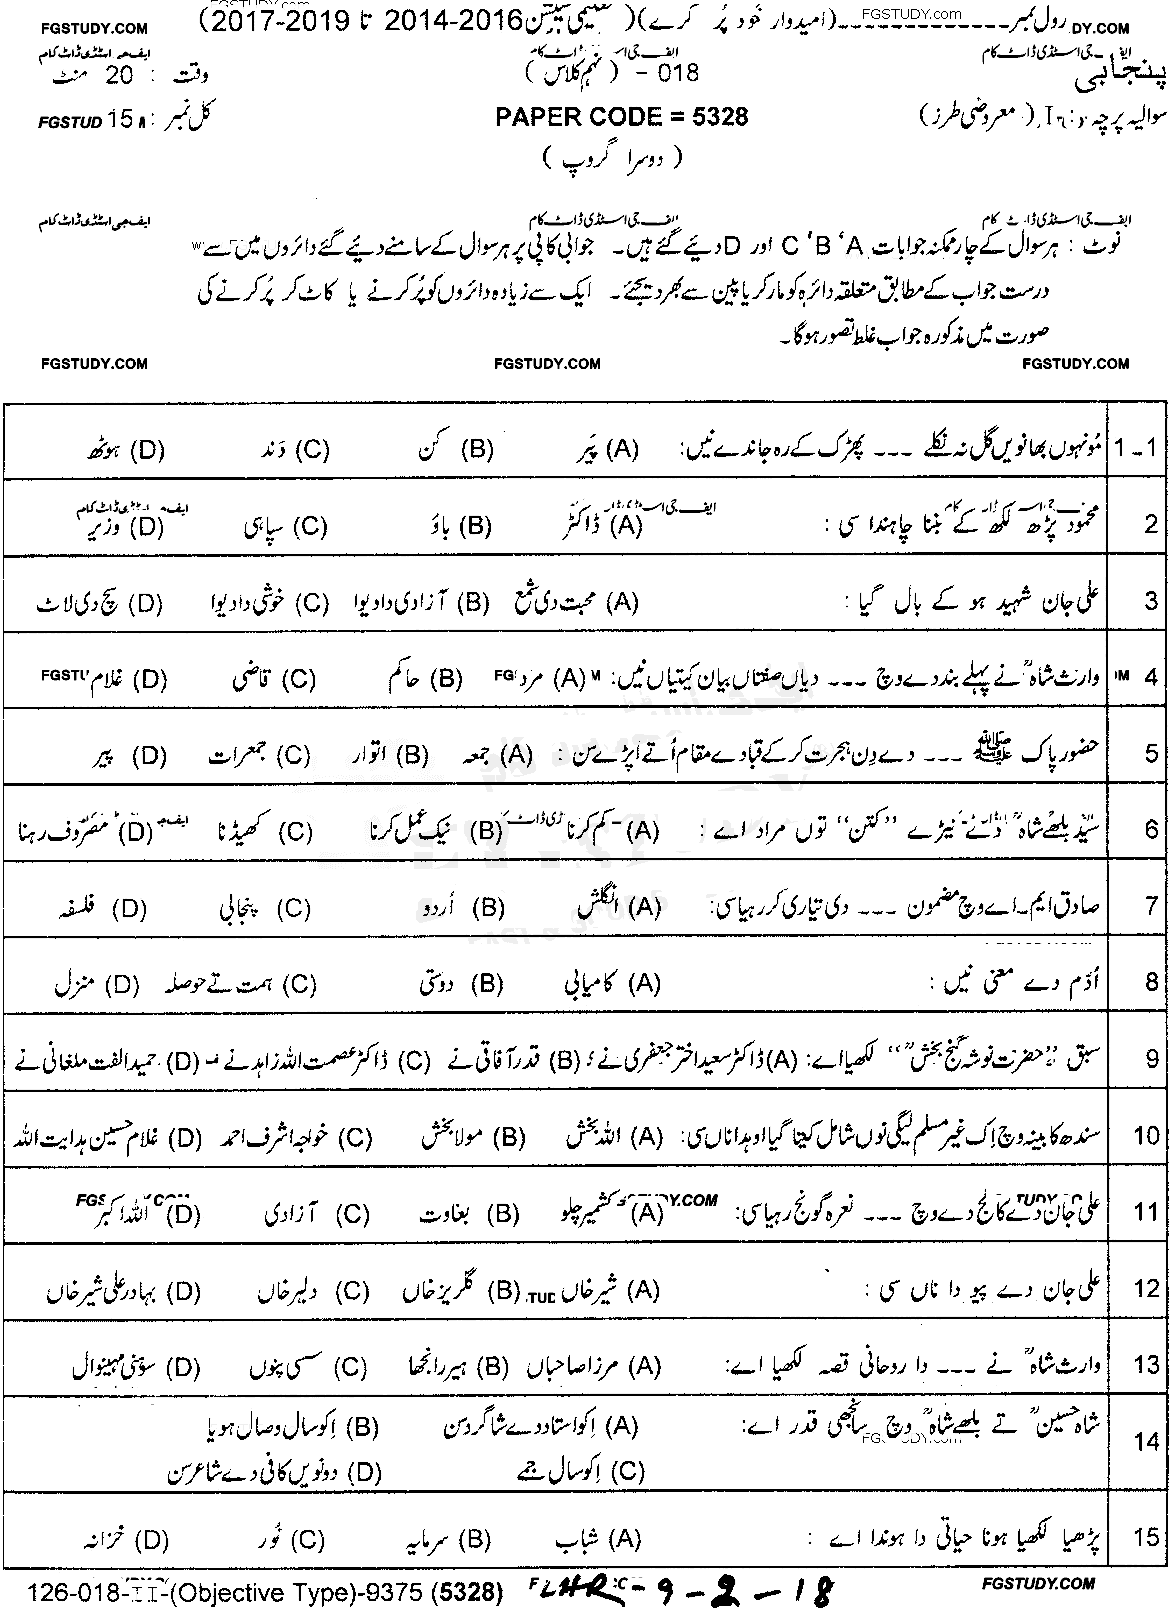 FGSTUDY.com
FGSTUDY.COM (2017-2019 تا 2014-2016 تعلیمی سیشن) (امیدوار خود پُر کرے) ---------------- رول نمبر DY.COM
ایف جی اسٹڈی ڈاٹ کام
پنجابی 018 - (نہم کلاس) وقت : 20 منٹ
سوالیہ پرچہ : I (معروضی طرز) PAPER CODE = 5328 کل نمبر : 15 FGSTUD
(دوسرا گروپ)
ایف جی اسٹڈی ڈاٹ کام ایف جی اسٹڈی ڈاٹ کام ایف جی اسٹڈی ڈاٹ کام
نوٹ : ہر سوال کے چار ممکنہ جوابات A ‘ B ‘ C اور D دئیے گئے ہیں۔ جوابی کاپی پر ہر سوال کے سامنے دئیے گئے دائروں میں سے
درست جواب کے مطابق متعلقہ دائرہ کو مارکر یا پین سے بھر دیجئے۔ ایک سے زیادہ دائروں کو پُر کرنے یا کاٹ کر پُر کرنے کی
صورت میں مذکورہ جواب غلط تصور ہوگا۔
FGSTUDY.COM FGSTUDY.COM FGSTUDY.COM
1-1 مُونہوں بھانویں گل نہ نکلے --- پھڑک کے رہ جاندے نیں: (A) پَیر (B) کن (C) دَند (D) ہوٹھ
2 محمود پڑھ لکھ کے بننا چاہندا سی : (A) ڈاکٹر (B) باؤ (C) سپاہی (D) وزیر
3 علی جان شہید ہو کے بال گیا : (A) محبت دی شمع (B) آزادی دا دیوا (C) خوشی دا دیوا (D) سچ دی لاٹ
4 وارث شاہؒ نے پہلے بند دے وچ --- دیاں صفتاں بیان کیتیاں نیں: (A) مرد (B) حاکم (C) قاضی (D) غلام
5 حضور پاک ﷺ --- دے دِن ہجرت کر کے قبا دے مقام اُتے اپڑے سن : (A) جمعہ (B) اتوار (C) جمعرات (D) پیر
6 سیّد بلھے شاہؒ دے نیڑے “کتن” توں مراد اے : (A) کم کرنا (B) نیک عمل کرنا (C) کھیڈنا (D) مصروف رہنا
7 صادق ایم۔اے وچ مضمون --- دی تیاری کر رہیا سی: (A) انگلش (B) اُردو (C) پنجابی (D) فلسفہ
8 اُدّم دے معنی نیں : (A) کامیابی (B) دوستی (C) ہمت تے حوصلہ (D) منزل
9 سبق “حضرت نوشہ گنج بخشؒ” لکھیا اے: (A) ڈاکٹر سعید اختر جعفری نے (B) قدر آفاقی نے (C) ڈاکٹر عصمت اللہ زاہد نے (D) حمید الفت ملغانی نے
10 سندھ کابینہ وچ اِک غیر مسلم لیگی نوں شامل کیتا گیا اوہدا ناں سی: (A) اللہ بخش (B) مولا بخش (C) خواجہ اشرف احمد (D) غلام حسین ہدایت اللہ
11 علی جان دے کالج دے وچ --- نعرہ گونج رہیا سی: (A) کشمیر چلو (B) بغاوت (C) آزادی (D) اللہ اکبر
12 علی جان دے پیو دا ناں سی : (A) شیر خاں (B) گلریز خاں (C) دلیر خاں (D) بہادر علی شیر خاں
13 وارث شاہؒ نے --- دا روحانی قصہ لکھیا اے: (A) مرزا صاحباں (B) ہیر رانجھا (C) سسی پنوں (D) سوہنی مہینوال
14 شاہ حسینؒ تے بلھے شاہؒ وچ سانجھی قدر اے: (A) اِکو استاد دے شاگرد سن (B) اِکو سال وصال ہویا
(C) اِکو سال جمے (D) دونویں کافی دے شاعر سن
15 پڑھیا لکھیا ہونا حیاتی دا ہوندا اے : (A) شباب (B) سرمایہ (C) نُور (D) خزانہ
126-018-II-(Objective Type)-9375 (5328) LHR-9-2-18 FGSTUDY.COM